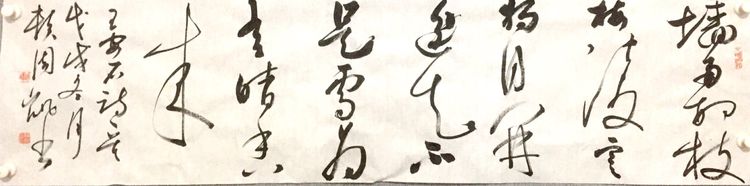 墙角数枝
梅凌寒
独自开
遥知不
是雪为
有暗香
来
王安石诗
戊戌冬月
书